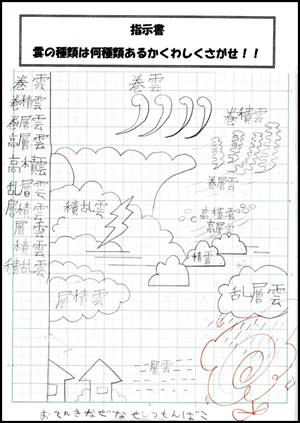 指示書
雲の種類は何種類あるかくわしくさがせ！！
巻雲
巻積雲
巻層雲
高層雲
高積雲
乱層雲
層積雲
層雲
積雲
積乱雲
巻雲
巻積雲
巻層雲
高積雲
高層雲
積乱雲
積雲
層積雲
乱層雲
層雲
おてんきなぜなぜしつもんばこ